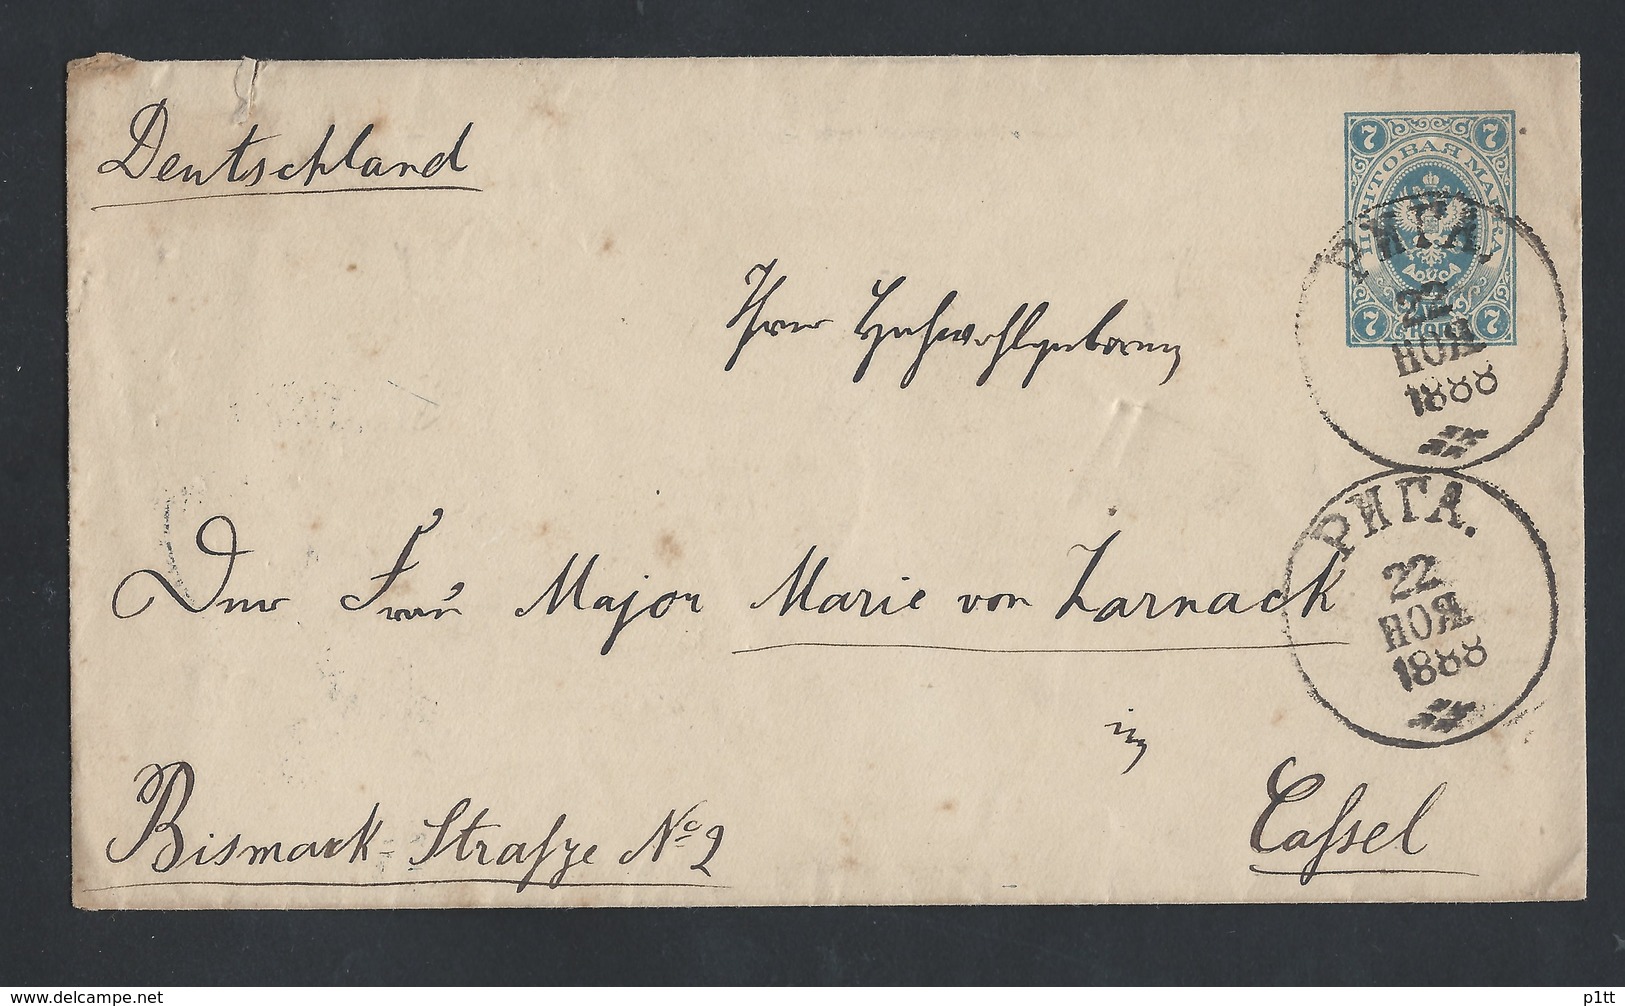 Deutschland
7 7
ПОЧТОВАЯ МАРКА
7 7
РИГА.
22
НОЯ
1888
Ihrer Hochwohlgeboren
РИГА.
22
НОЯ
1888
Der Frau Major Marie von Zarnack
in
Bismark-Straſze No 2
Caſsel
delcampe.net
p1tt